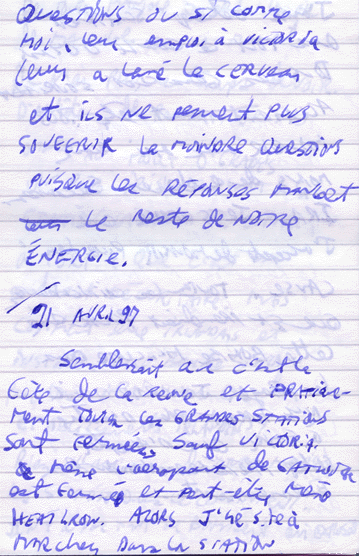 QUESTIONS OU SI COMME
MOI, leur emploi à VICTORIA
leurs a lavé le CERVEAU
et ils NE peuvent PLUS
SOULEVER la MOINDRE QUESTIONS
PUISQUE les RÉPONSES MANGENT
le Reste de NOTRE
ÉNERGIE.
21 AVRIL 97
Semblerait que c'est la
fête de la Reine et PRATIQUE-
MENT TOUTES les GRANDES STATIONS
SONT FERMÉES SAUF VICTORIA
même l'aéroport de GATWICK
est fermé et peut-être même
HEATHROW. ALORS J'HÉSITE à
MARCHER DANS la STATION